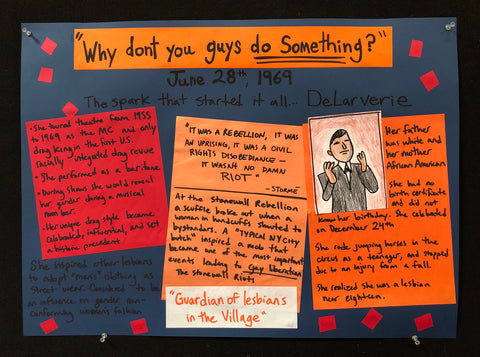 "Why dont you guys do Something?"
June 28th, 1969
The spark that started it all... DeLarverie
• She toured theatre from 1955
to 1969 as the MC and only
drag king in the first U.S.
racially-integrated drag revue
• She performed as a baritone
• During shows she would reveal
her gender during a musical
number.
• Her unique drag style became
celebrated, influential, and set
a historic precedent
She inspired other lesbians
to adopt "men's" clothing as
street wear. Considered to be
an influence on gender non-
conforming women's fashion
"IT WAS A REBELLION, IT WAS
AN UPRISING, IT WAS A CIVIL
RIGHTS DISOBEDIANCE –
IT WASN'T NO DAMN
RIOT"
- STORMÉ
At the Stonewall Rebellion
a scuffle broke out when a
woman in handcuffs shouted to
bystanders. A "TYPICAL NY CITY
butch" inspired a mob that
became one of the most important
events leading to gay liberation
The Stonewall Riots
"Guardian of lesbians
in the Village"
Her father
was white and
her mother
African American
She had no
birth certificate
and did not
know her birthday. She celebrated
on December 24th
She rode jumping horses in the
circus as a teenager, and stopped
due to an injury from a fall.
She realized she was a lesbian
near eighteen.